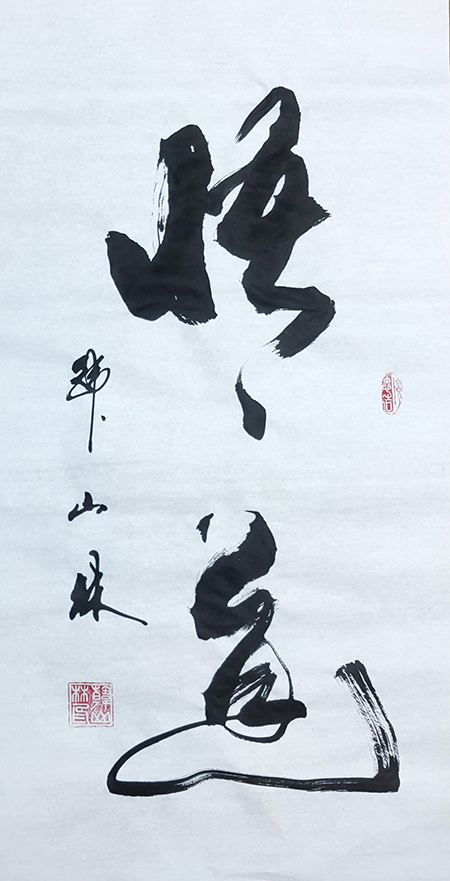 悟道
韩山林